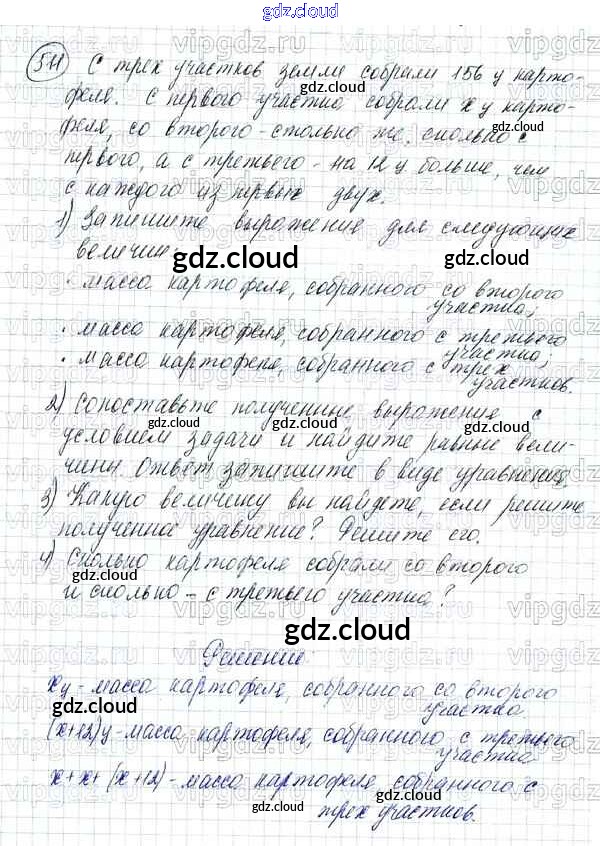 gdz.cloud
511 С трех участков земли собрали 156 ц карто-
феля. С первого участка собрали x ц карто-
феля, со второго - столько же, сколько с
первого, а с третьего - на 12 ц больше, чем
с каждого из первых двух.
1) Запишите выражение для следующих
величин:
gdz.cloud
· масса картофеля, собранного со второго
участка;
· масса картофеля, собранного с третьего
участка;
· масса картофеля, собранного с трех
участков.
2) Сопоставьте полученные выражения с
условием задачи и найдите равные вели-
чины. Ответ запишите в виде уравнения.
3) Какую величину вы найдете, если решите
полученное уравнение? Решите его.
4) Сколько картофеля собрали со второго
и сколько - с третьего участка?
gdz.cloud
Решение:
x ц - масса картофеля, собранного со второго
участка
(x+12) ц - масса картофеля, собранного с третьего
участка
x + x + (x+12) - масса картофеля собранного с
трех участков.
gdz.cloud